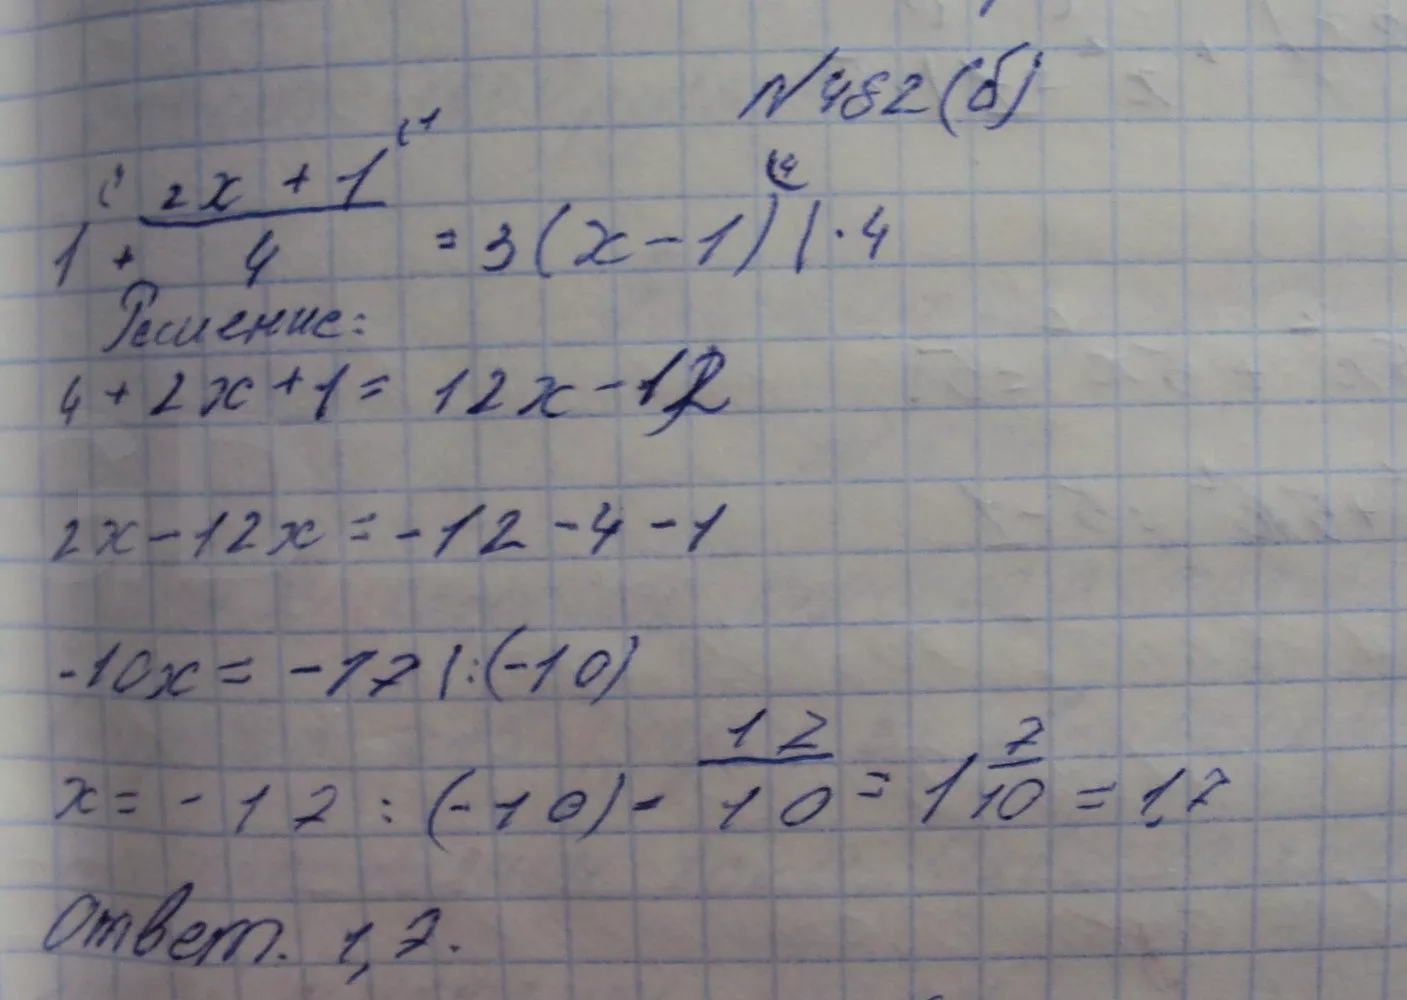 №482(б)
1 + (2x + 1)/4 = 3(x - 1) | · 4
Решение:
4 + 2x + 1 = 12x - 12
2x - 12x = -12 - 4 - 1
-10x = -17 | : (-10)
x = -17 : (-10) = 17/10 = 1 7/10 = 1,7
Ответ. 1,7.